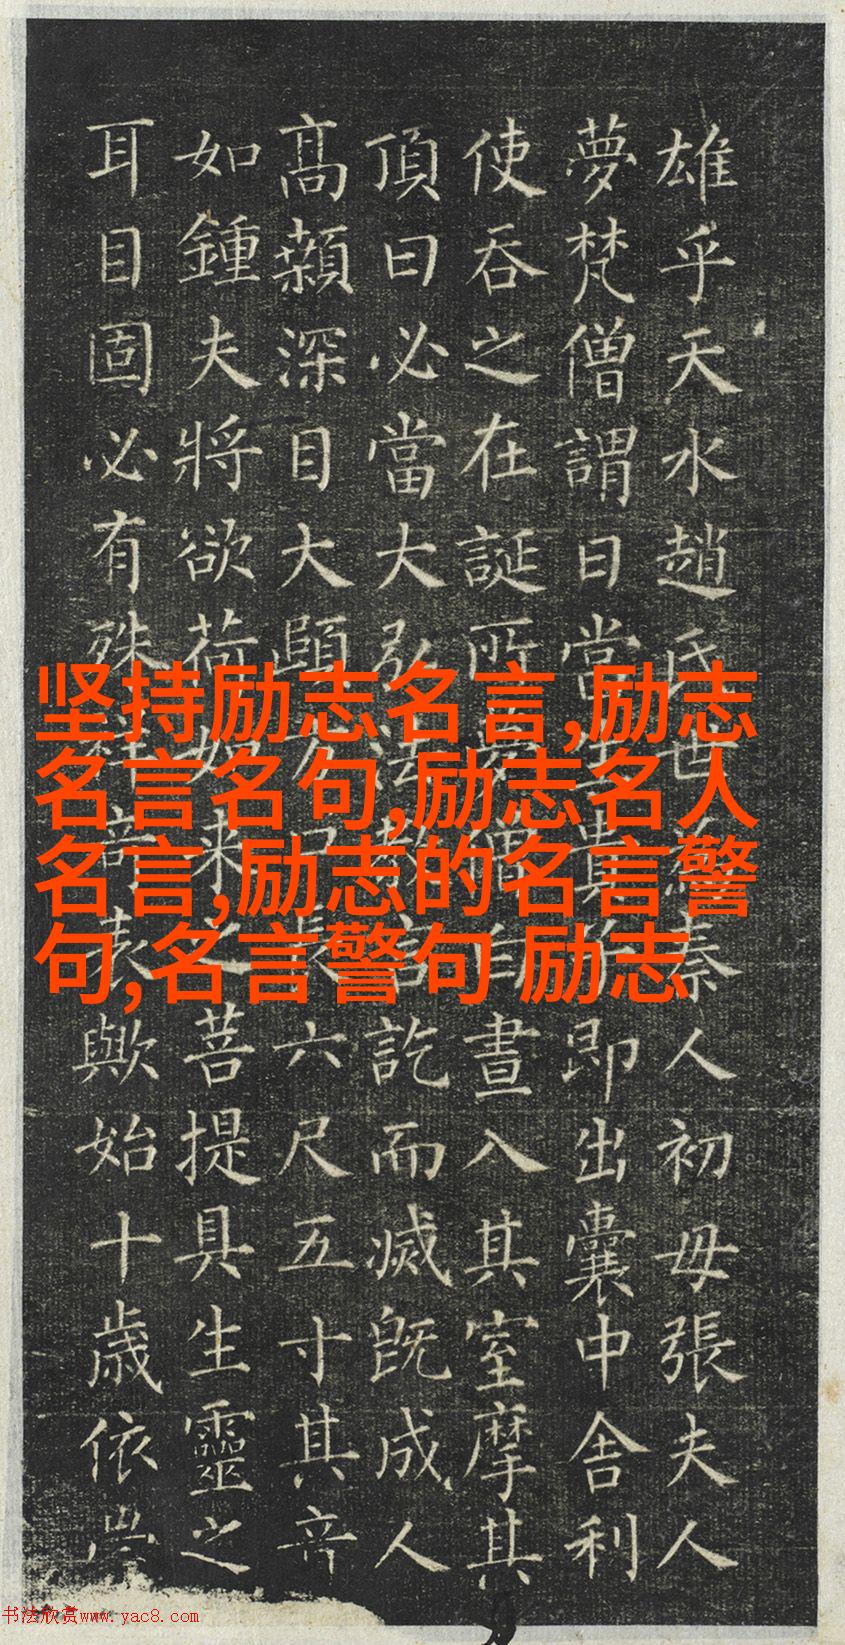 雄乎天水趙氏世為秦人初母張夫人
夢梵僧謂曰當生貴子即出囊中舍利
使吞之在誕所夢僧白晝入其室摩其
頂曰必當大弘法教言訖而滅既成人
高顙深目大頤方口長六尺五寸其音
如鍾夫將欲荷如來之菩提具生靈之
耳目固必有殊祥奇表歟始十歲依
坚持励志名言,励志
名言名句,励志名人
名言,励志的名言警
句,名言警句 励志
书法欣赏www.yac8.com